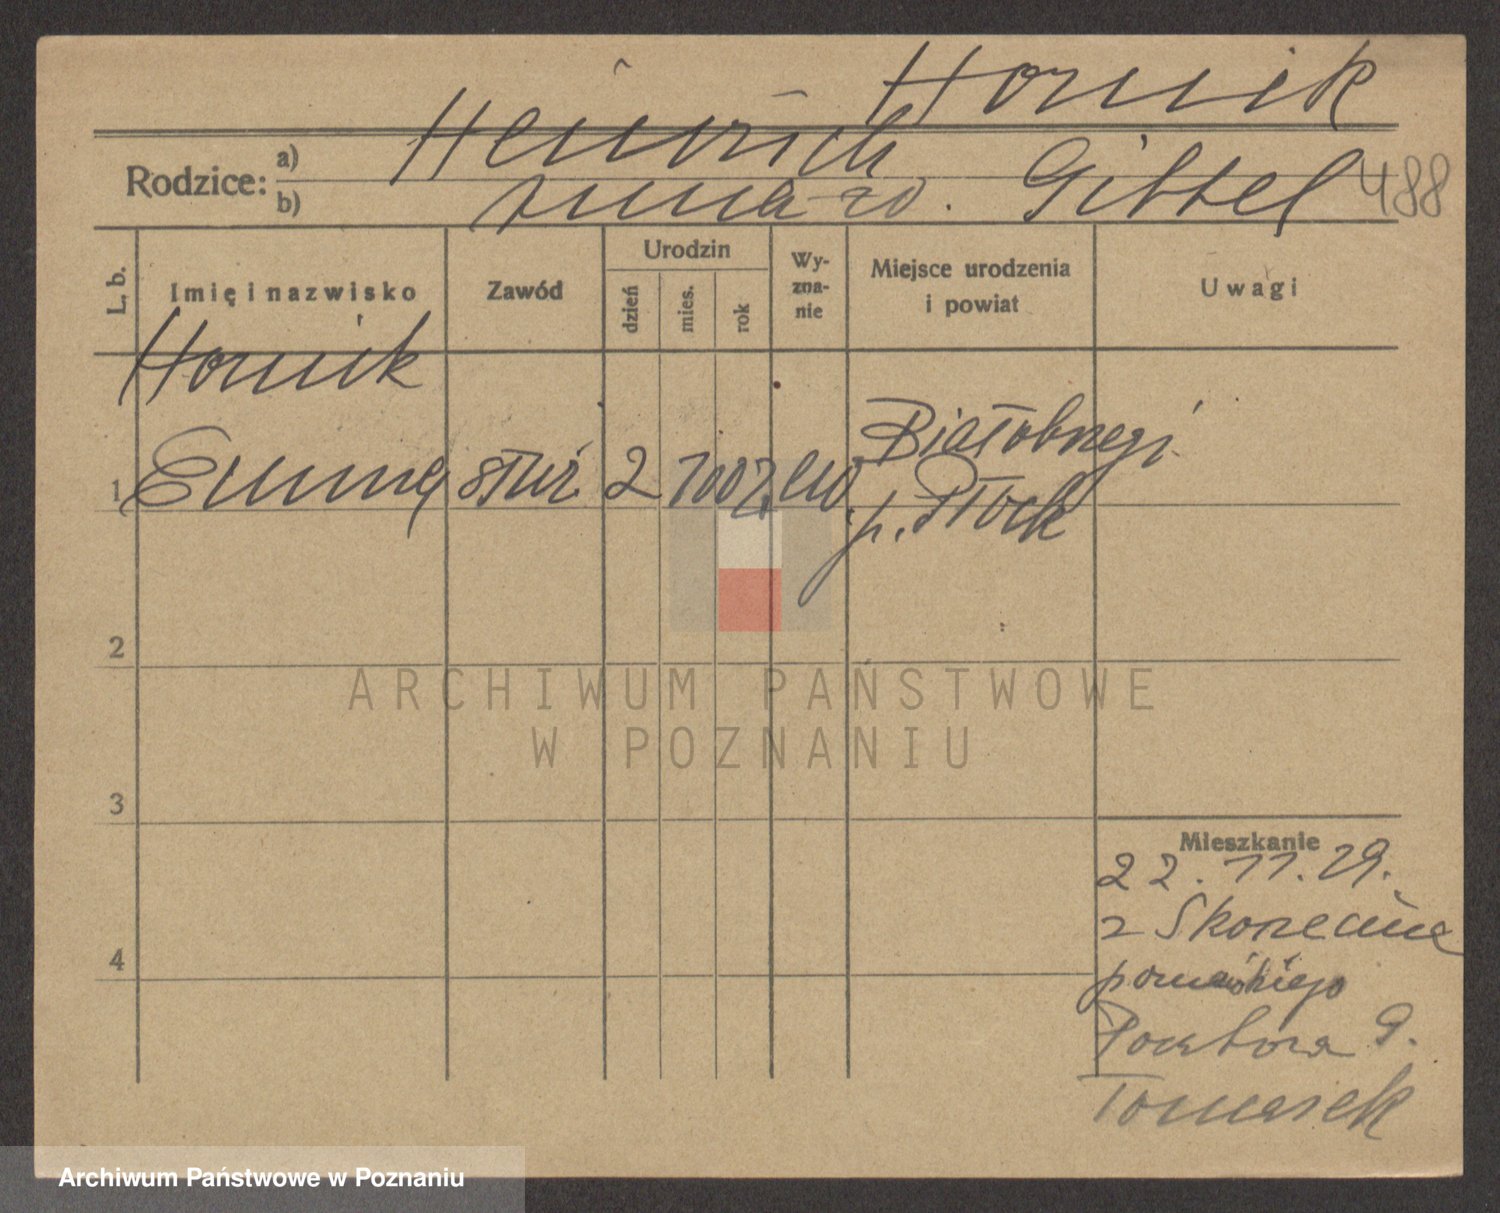 Hornik
Rodzice: a) Heinrich
b) Anna zd. Gittel 488
L. b. Imię i nazwisko Zawód Urodzin dzień mies. rok Wyznanie Miejsce urodzenia i powiat Uwagi
Hornik
1 Emma służ. 2 7 007 ew. Białobrzegi
p. Płock
2
3
4
Mieszkanie
22.11.29.
z Skorzecina
poznańskiego
Pocztowa 9.
Tomasek
ARCHIWUM PAŃSTWOWE
W POZNANIU
Archiwum Państwowe w Poznaniu